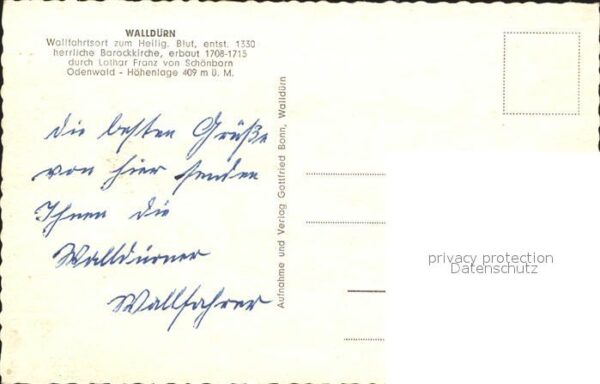 WALLDÜRN
Wallfahrtsort zum Heilig. Blut, entst. 1330
herrliche Barockkirche, erbaut 1708-1715
durch Lothar Franz von Schönborn
Odenwald - Höhenlage 409 m ü. M.
die besten Grüße
von hier senden
Ihnen die
Walldürner
Wallfahrer
Aufnahme und Verlag Gottfried Bonn, Walldürn
privacy protection
Datenschutz